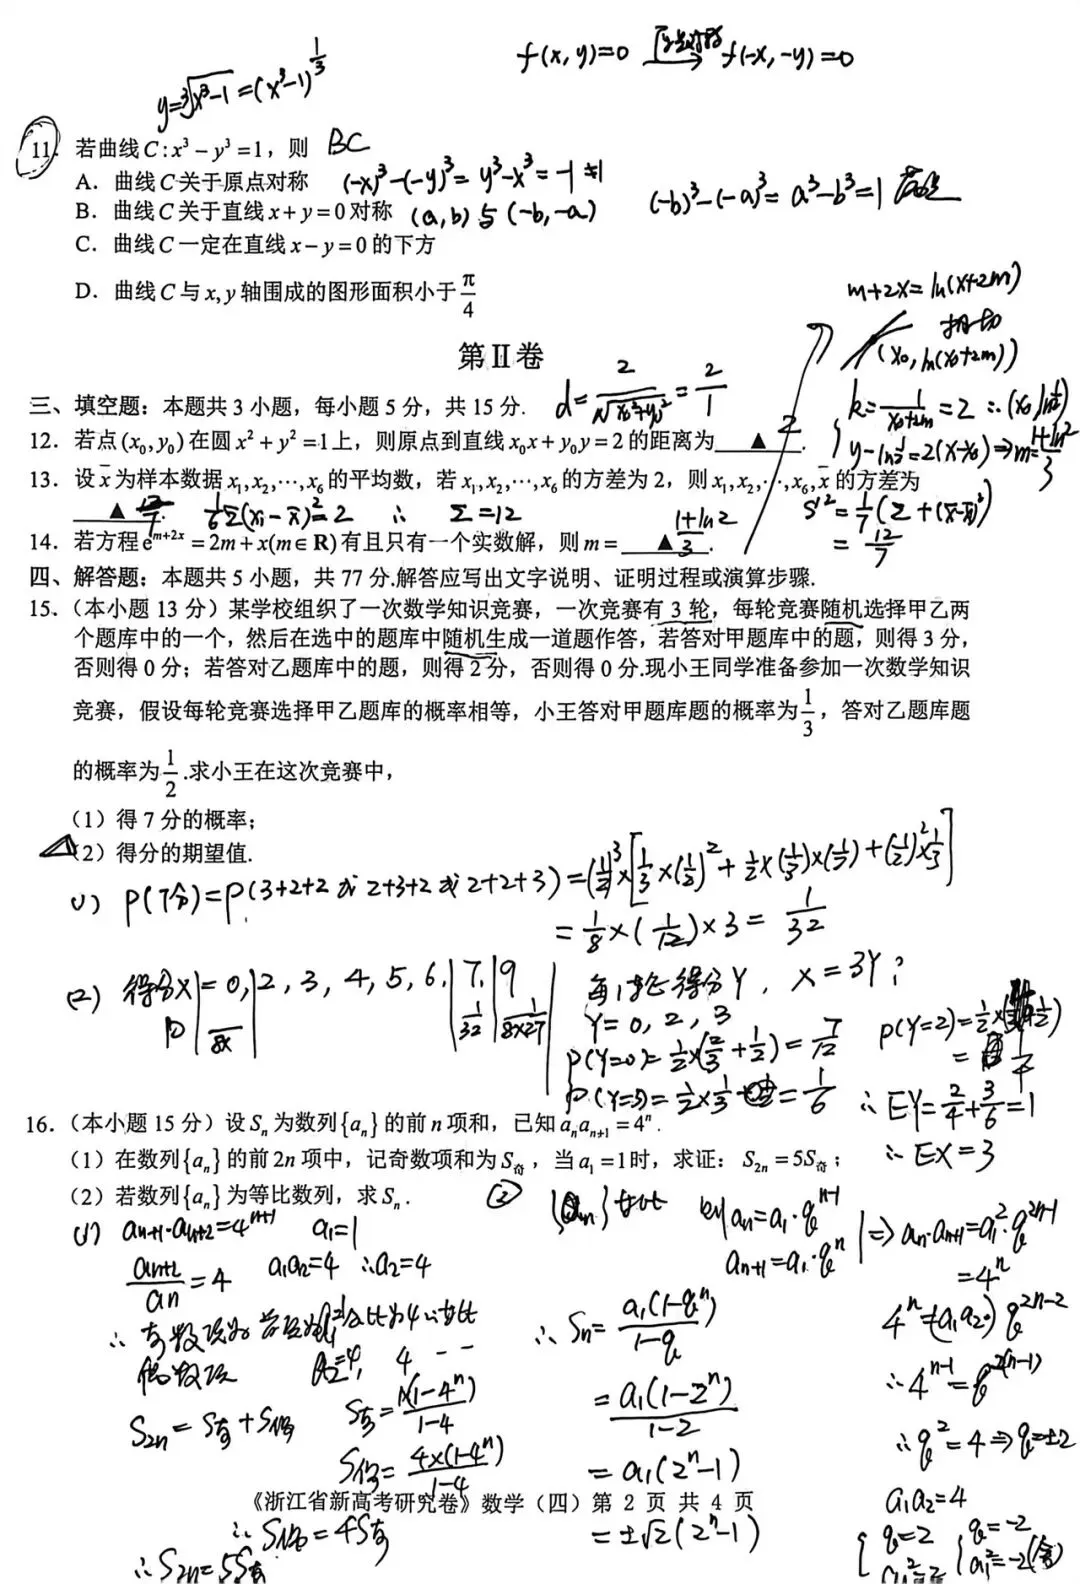 f(x,y)=0 → f(-x,-y)=0
y=∛(x³-1)=(x³-1)^(1/3)
11. 若曲线C:x³-y³=1，则 BC
A. 曲线C关于原点对称 (-x)³-(-y)³=y³-x³=-1≠1
B. 曲线C关于直线x+y=0对称 (a,b)与(-b,-a) (-b)³-(-a)³=a³-b³=1
C. 曲线C一定在直线x-y=0的下方
D. 曲线C与x,y轴围成的图形面积小于π/4
m+2x=ln(x+2m)
相切
(x₀,ln(x₀+2m))
k=1/(x₀+2m)=2
y-ln½=2(x-x₀)⇒m=(1+ln2)/3
第Ⅱ卷
d=2/√(x₀²+y₀²)=2/1
三、填空题：本题共3小题，每小题5分，共15分.
12. 若点(x₀,y₀)在圆x²+y²=1上，则原点到直线x₀x+y₀y=2的距离为 ▲ 2 .
13. 设x̄为样本数据x₁,x₂,⋯,x₆的平均数，若x₁,x₂,⋯,x₆的方差为2，则x₁,x₂,⋯,x₆,x̄的方差为
▲ 12/7 . 1/6Σ(xᵢ-x̄)²=2 ∴ Σ=12
S'²=1/7(Σ+(x̄-x̄)²)
=12/7
14. 若方程e^(m+2x)=2m+x(m∈R)有且只有一个实数解，则m= ▲ (1+ln2)/3 .
四、解答题：本题共5小题，共77分.解答应写出文字说明、证明过程或演算步骤.
15.（本小题13分）某学校组织了一次数学知识竞赛，一次竞赛有3轮，每轮竞赛随机选择甲乙两
个题库中的一个，然后在选中的题库中随机生成一道题作答，若答对甲题库中的题，则得3分，
否则得0分；若答对乙题库中的题，则得2分，否则得0分.现小王同学准备参加一次数学知识
竞赛，假设每轮竞赛选择甲乙题库的概率相等，小王答对甲题库题的概率为1/3，答对乙题库题
的概率为1/2.求小王在这次竞赛中，
（1）得7分的概率；
（2）得分的期望值.
(1) P(7分)=P(3+2+2或2+3+2或2+2+3)=(1/2)³×[1/3×(1/2)²+1/2×(1/3)×(1/2)+(1/2)²×1/3]
=1/8×(1/12)×3=1/32
(2) 得分X=0,2,3,4,5,6,7,9
P 1/32 1/(8×27)
每1轮得分Y，X=3Y？
Y=0,2,3
P(Y=0)=1/2×(2/3+1/2)=7/12
P(Y=3)=1/2×1/3=1/6
∴EY=2/4+3/6=1
∴EX=3
16.（本小题15分）设Sₙ为数列{aₙ}的前n项和，已知aₙaₙ₊₁=4ⁿ.
（1）在数列{aₙ}的前2n项中，记奇数项和为S奇，当a₁=1时，求证：S₂ₙ=5S奇；
（2）若数列{aₙ}为等比数列，求Sₙ.
(1) aₙ₊₁·aₙ₊₂=4ⁿ⁺¹ a₁=1
aₙ₊₂/aₙ=4 a₁a₂=4 ∴a₂=4
偶数项 a₂=4, 4
S₂ₙ=S奇+S偶 S奇=1×(1-4ⁿ)/(1-4)
S偶=4×(1-4ⁿ)/(1-4)
∴S偶=4S奇
∴S₂ₙ=5S奇
② {aₙ}等比 则aₙ=a₁·qⁿ⁻¹
aₙ₊₁=a₁·qⁿ
⇒aₙ·aₙ₊₁=a₁²·q²ⁿ⁻¹
=4ⁿ
4ⁿ=(a₁a₂)q²ⁿ⁻²
∴4ⁿ⁻¹=q²⁽ⁿ⁻¹⁾
∴q²=4⇒q=±2
a₁a₂=4
q=2
q=-2
a₁²=-2(舍)
∴Sₙ=a₁(1-qⁿ)/(1-q)
=a₁(1-2ⁿ)/(1-2)
=a₁(2ⁿ-1)
=±√2(2ⁿ-1)
《浙江省新高考研究卷》数学（四）第 2 页 共 4 页